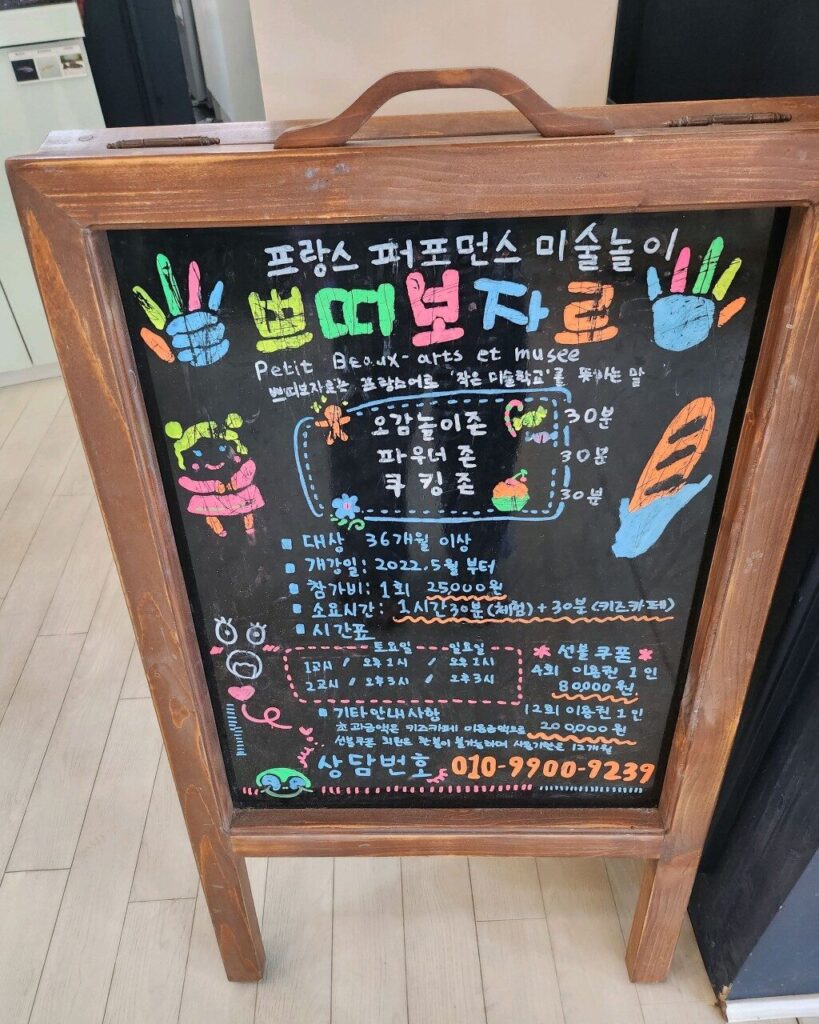 프랑스 퍼포먼스 미술놀이
쁘띠보자르
Petit Beaux-arts et musee
쁘띠보자르는 프랑스어로 '작은 미술학교'를 뜻하는 말
오감놀이존 30분
파우더존 30분
쿠킹존 30분
대상 36개월 이상
개강일: 2022.5월부터
참가비: 1회 25,000원
소요시간: 1시간30분(체험)+30분(키즈카페)
시간표
토요일 일요일
1교시 / 오후1시 / 오후1시
2교시 / 오후3시 / 오후3시
선불쿠폰
4회 이용권 1인
80,000원
12회 이용권 1인
200,000원
기타안내사항
초과금액은 키즈카페 이용금액으로
선불쿠폰 회원은 환불이 불가능하며 사용기한은 12개월
상담번호 010-9900-9239